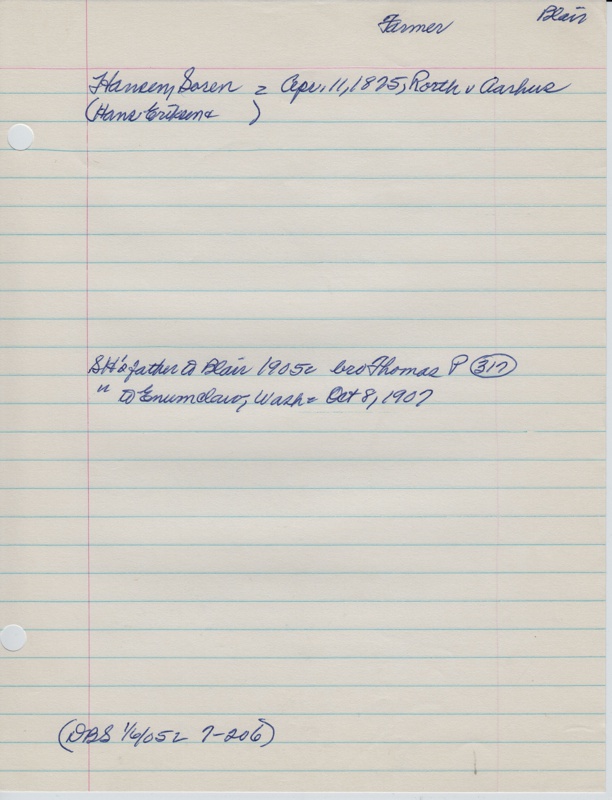 Blair
Farmer
Hansen, Soren = Apr. 11, 1825, Rorth v Aarhus
(Hans Eriksen+ )
SH's father to Blair 1905 bro Thomas P 317
" to Enumclaw, Wash = Oct 8, 1907
(DBS 1/6/05 7-206)